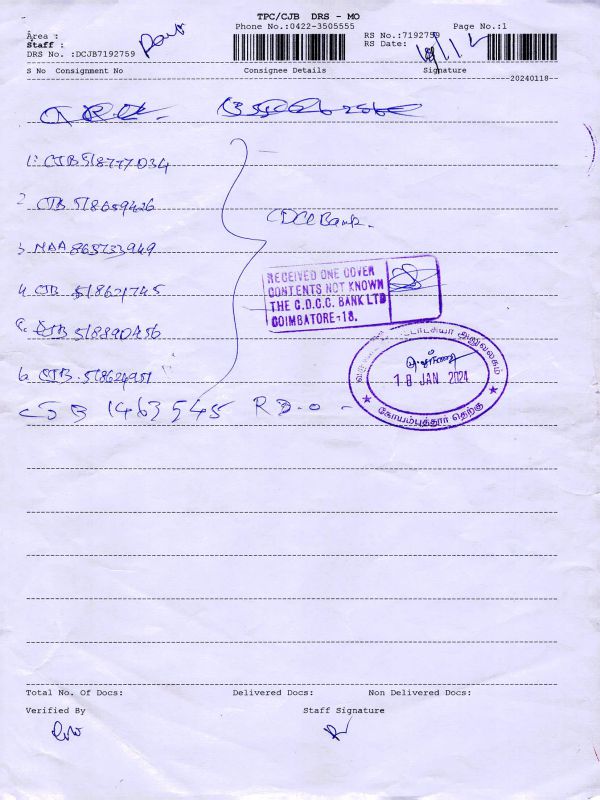 TPC/CJB DRS - MO
Phone No.:0422-3505555
Area :
Staff :
DRS No. :DCJB7192759
RS No.:7192759
RS Date:
Page No.:1
S No Consignment No Consignee Details Signature
20240118
1. CJB 518777034
2. CJB 518659426
CDCC Bank.
3. MAA 865733949
4. CJB 518621745
5. CJB 518890456
6. CJB 518624951
CJB 1463545 R D. O -
RECEIVED ONE COVER
CONTENTS NOT KNOWN
THE C.D.C.C. BANK LTD
COIMBATORE-18.
18 JAN 2024
கோயம்புத்தூர் தெற்கு
Total No. Of Docs: Delivered Docs: Non Delivered Docs:
Verified By Staff Signature